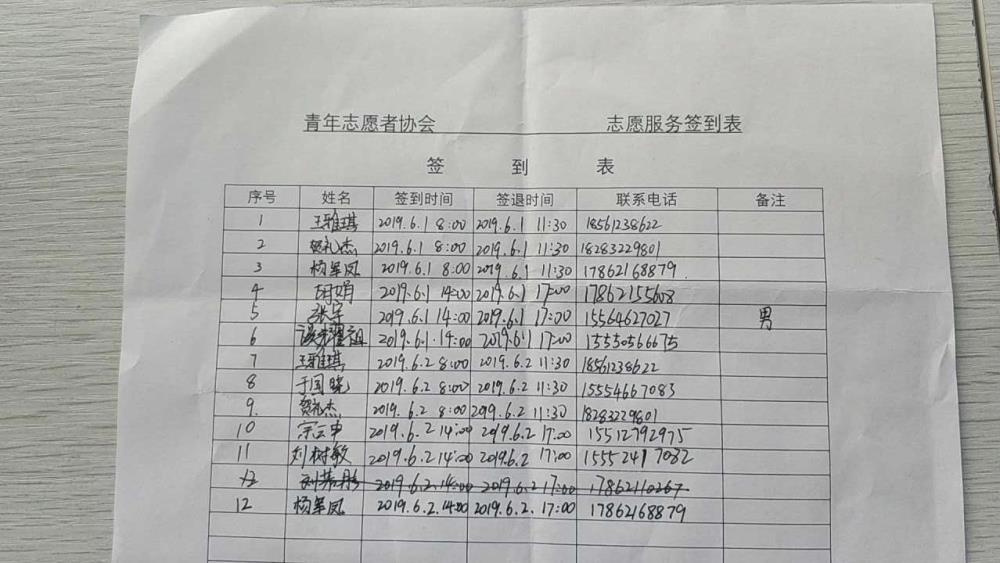 青年志愿者协会 志愿服务签到表
签 到 表
序号 姓名 签到时间 签退时间 联系电话 备注
1 王雅琪 2019.6.1 8:00 2019.6.1 11:30 18561238622
2 贺礼杰 2019.6.1 8:00 2019.6.1 11:30 18283229801
3 杨军凤 2019.6.1 8:00 2019.6.1 11:30 17862168879
4 胡娟 2019.6.1 14:00 2019.6.1 17:00 17862155608
5 张宇 2019.6.1 14:00 2019.6.1 17:00 15564627027 男
6 2019.6.1 14:00 2019.6.1 17:00 15550566675
7 王雅琪 2019.6.2 8:00 2019.6.2 11:30 18561238622
8 于国晓 2019.6.2 8:00 2019.6.2 11:30 15554667083
9. 贺礼杰 2019.6.2 8:00 2019.6.2 11:30 18283229801
10 宗云申 2019.6.2 14:00 2019.6.2 17:00 15512792975
11 刘树敏 2019.6.2 14:00 2019.6.2 17:00 15552417082
12 2019.6.2.14:00 2019.6.2 17:00 17862110267
12 杨军凤 2019.6.2.14:00 2019.6.2.17:00 17862168879